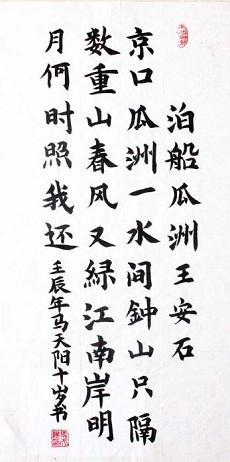 泊船瓜洲王安石
京口瓜洲一水间鈡山只隔
数重山春风又緑江南岸明
月何时照我还
壬辰年马天阳十岁书